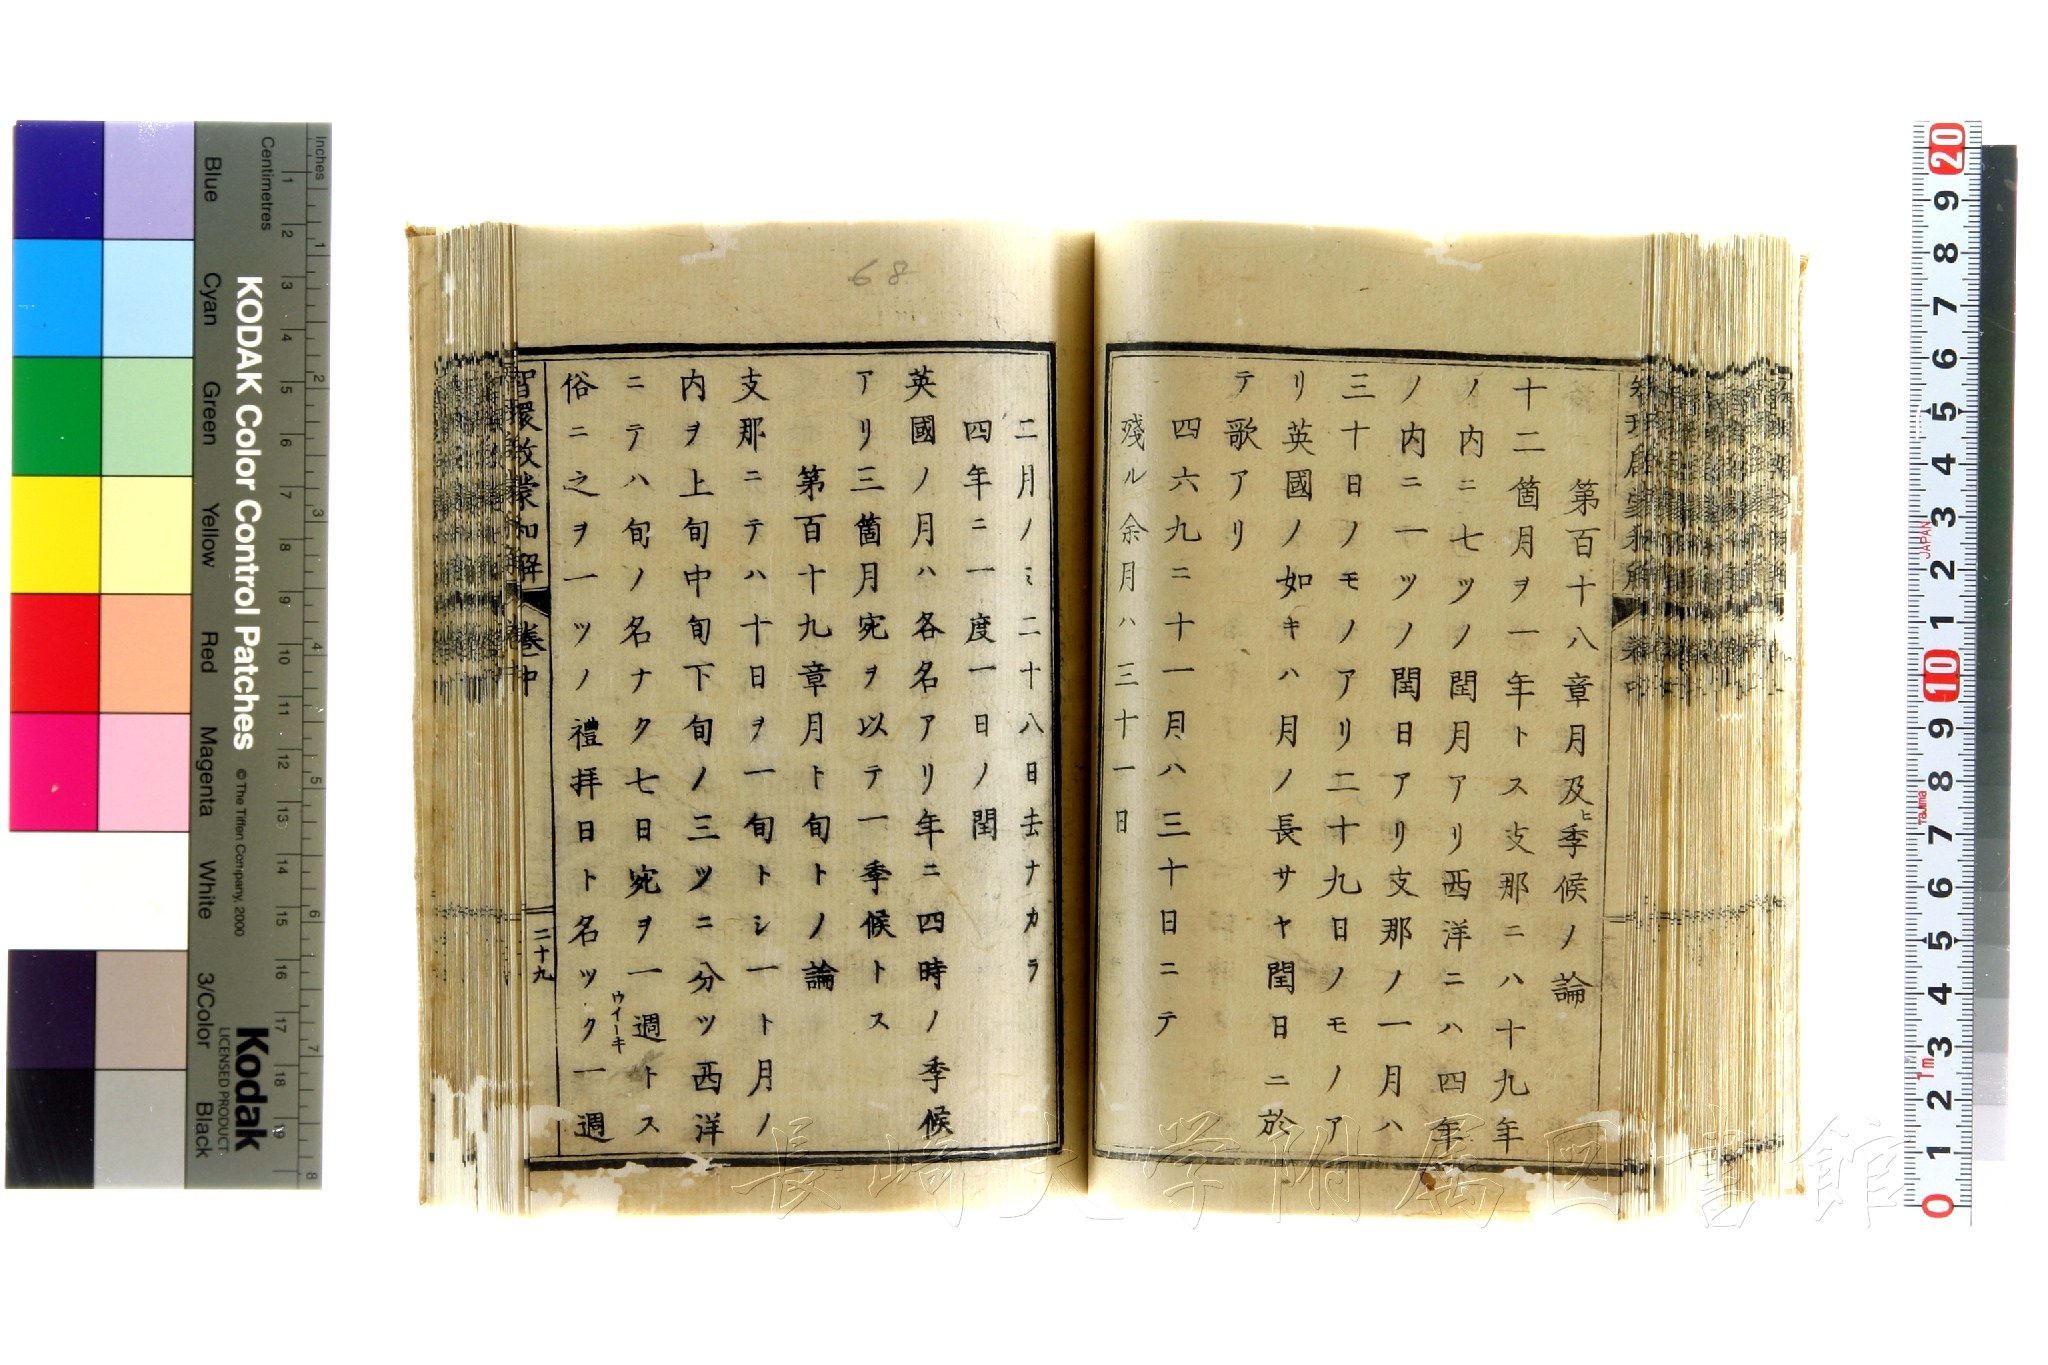 第百十八章月及ヒ季候ノ論
十二箇月ヲ一年トス支那ニハ十九年
ノ内ニ七ツノ閏月アリ西洋ニハ四年
ノ内ニ一ツノ閏日アリ支那ノ一月ハ
三十日ノモノアリ二十九日ノモノア
リ英國ノ如キハ月ノ長サヤ閏日ニ於
テ歌アリ
四六九ニ十一月ハ三十日ニテ
殘ル余月ハ三十一日
二月ノミ二十八日去ナカラ
四年ニ一度一日ノ閏
英國ノ月ハ各名アリ年ニ四時ノ季候
アリ三箇月宛ヲ以テ一季候トス
第百十九章月ト旬トノ論
支那ニテハ十日ヲ一旬トシ一ト月ノ
内ヲ上旬中旬下旬ノ三ツニ分ツ西洋
ニテハ旬ノ名ナク七日宛ヲ一週トス
ウイーキ
俗ニ之ヲ一ツノ禮拝日ト名ツク一週
智環啟蒙和解 卷中
二十九
68
長崎大学附属図書館
KODAK Color Control Patches
© The Tiffen Company, 2000
Kodak
LICENSED PRODUCT
Inches
Centimetres
Blue
Cyan
Green
Yellow
Red
Magenta
White
3/Color
Black
1 2 3 4 5 6 7 8 9 10 11 12 13 14 15 16 17 18 19
1 2 3 4 5 6 7 8
20 9 8 7 6 5 4 3 2 1 10 9 8 7 6 5 4 3 2 1 0
JAPAN
Tajima
Tm